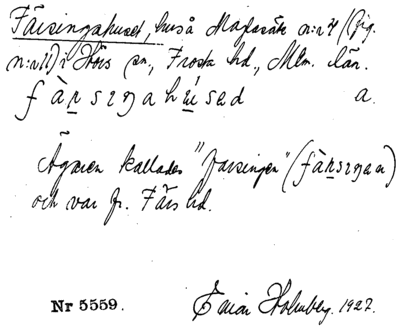 Färsingahuset, hus å Maglasäte n:r 4 (fig.
n:r 11) i Hörs sn., Frosta hd., Mlm. län.
fàrsiŋahúsad a.
Ägaren kallades "farsingen" (fàrsiŋan)
och var fr. Färs hd.
Nr 5559. Ewan Holmberg. 1927.